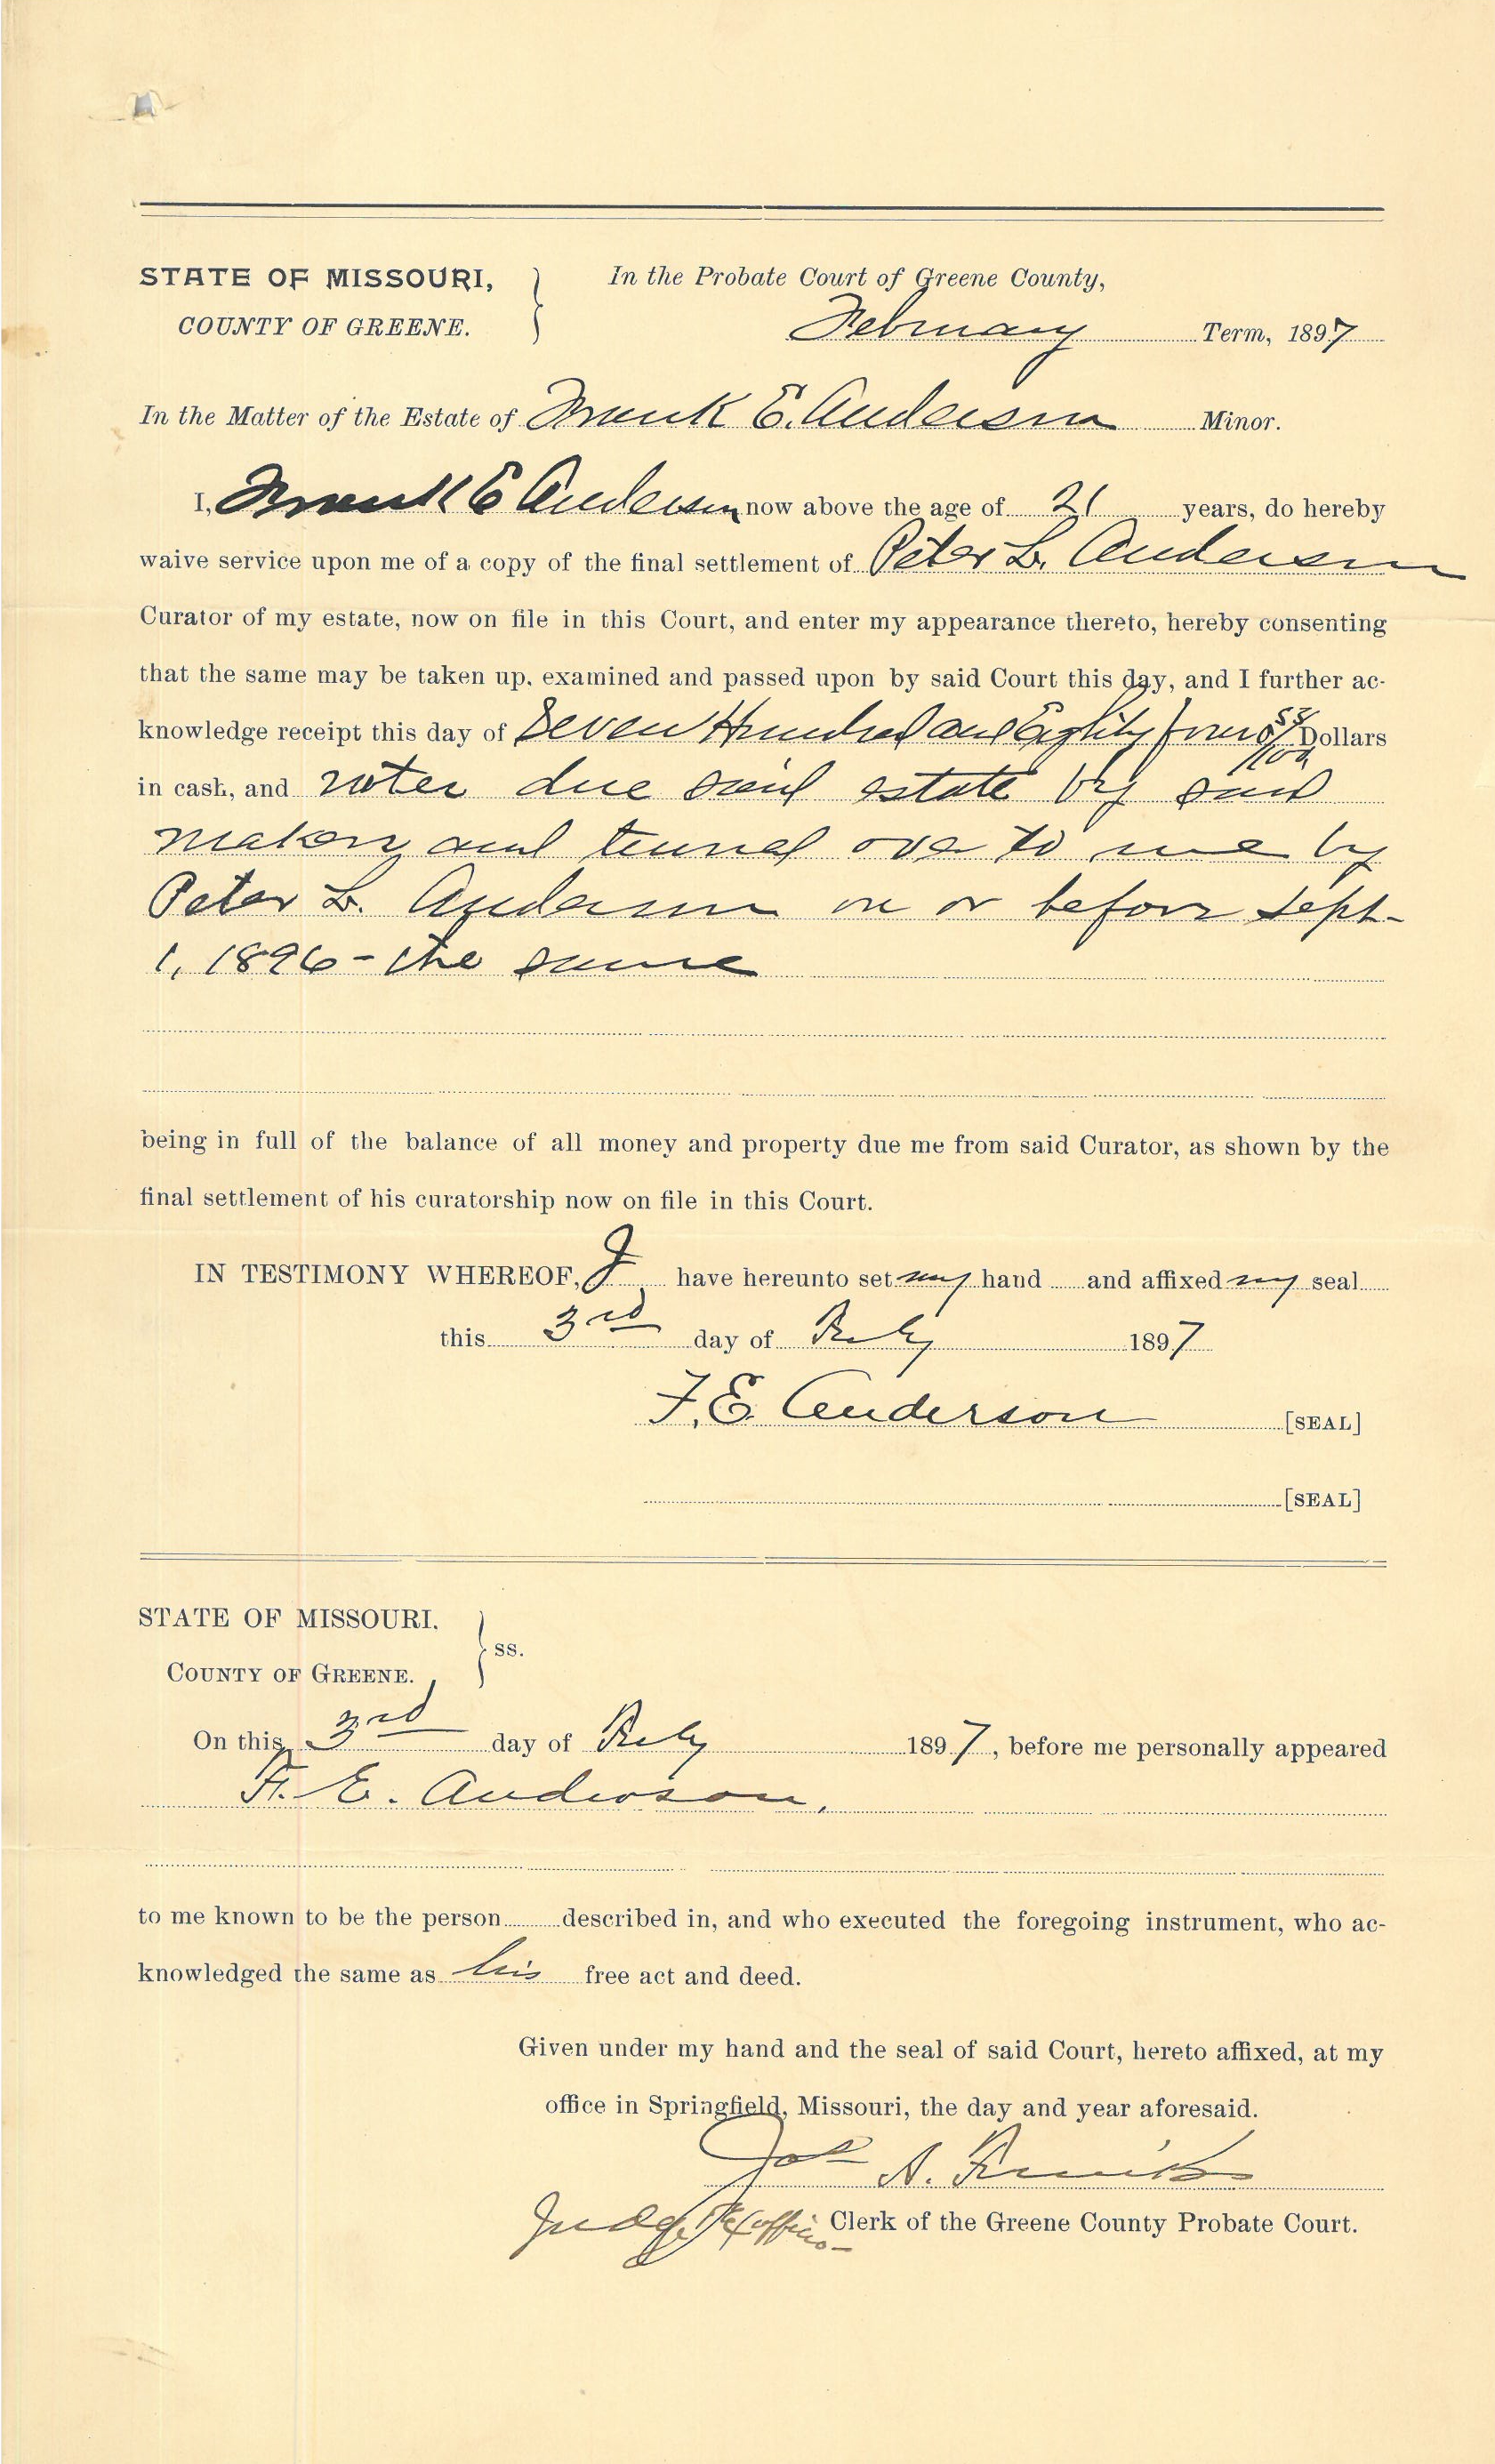 STATE OF MISSOURI,
COUNTY OF GREENE.
In the Probate Court of Greene County,
February Term, 1897
In the Matter of the Estate of Frank E. Anderson Minor.
I, Frank E Anderson now above the age of 21 years, do hereby
waive service upon me of a copy of the final settlement of Peter L. Anderson
Curator of my estate, now on file in this Court, and enter my appearance thereto, hereby consenting
that the same may be taken up, examined and passed upon by said Court this day, and I further ac-
knowledge receipt this day of Seven Hundred and Eighty four /100 Dollars
in cash, and notes due said estate by said
makers and turned over to me by
Peter L. Anderson on or before Sept.
1, 1896 - the same
being in full of the balance of all money and property due me from said Curator, as shown by the
final settlement of his curatorship now on file in this Court.
IN TESTIMONY WHEREOF, I have hereunto set my hand and affixed my seal
this 3rd day of Feby 1897
F. E. Anderson [SEAL]
[SEAL]
STATE OF MISSOURI.
COUNTY OF GREENE.
ss.
On this 3rd day of Feby 1897, before me personally appeared
F. E. Anderson,
to me known to be the person described in, and who executed the foregoing instrument, who ac-
knowledged the same as his free act and deed.
Given under my hand and the seal of said Court, hereto affixed, at my
office in Springfield, Missouri, the day and year aforesaid.
A.
Judge Exofficio Clerk of the Greene County Probate Court.